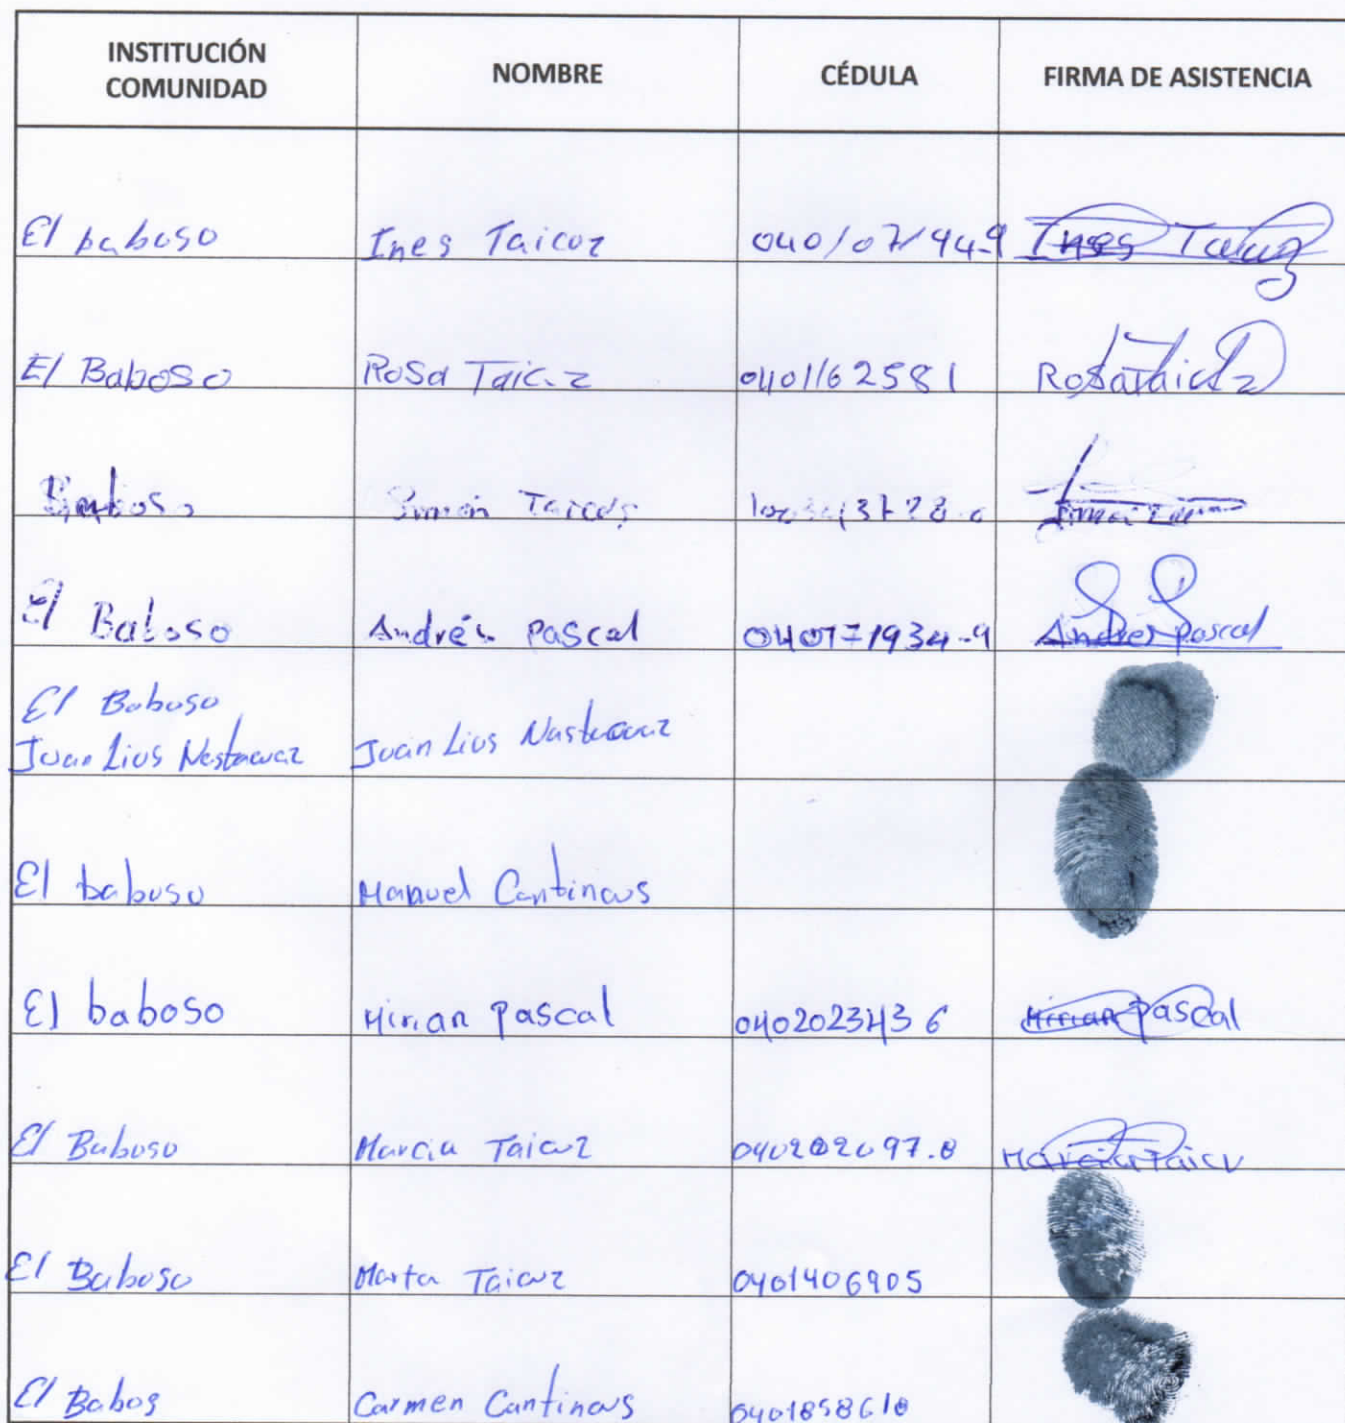 INSTITUCIÓN
COMUNIDAD
NOMBRE
CÉDULA
FIRMA DE ASISTENCIA
El baboso
Ines Taicuz
040107194-9
Ines Taicuz
El Baboso
Rosa Taicuz
0401162581
Rosa Taicuz
Simón
El Baboso
Andrés Pascal
040171934-9
Andres Pascal
El Baboso
Juan Lius Nastacuaz
Juan Lius Nastacuaz
El baboso
Manuel Canticus
El baboso
Mirian Pascal
0402023436
Mirian Pascal
El Baboso
Marcia Taicuz
040202097.8
Marcia Taicu
El Baboso
Marta Taicuz
0401406905
El Babos
Carmen Canticus
0401858618